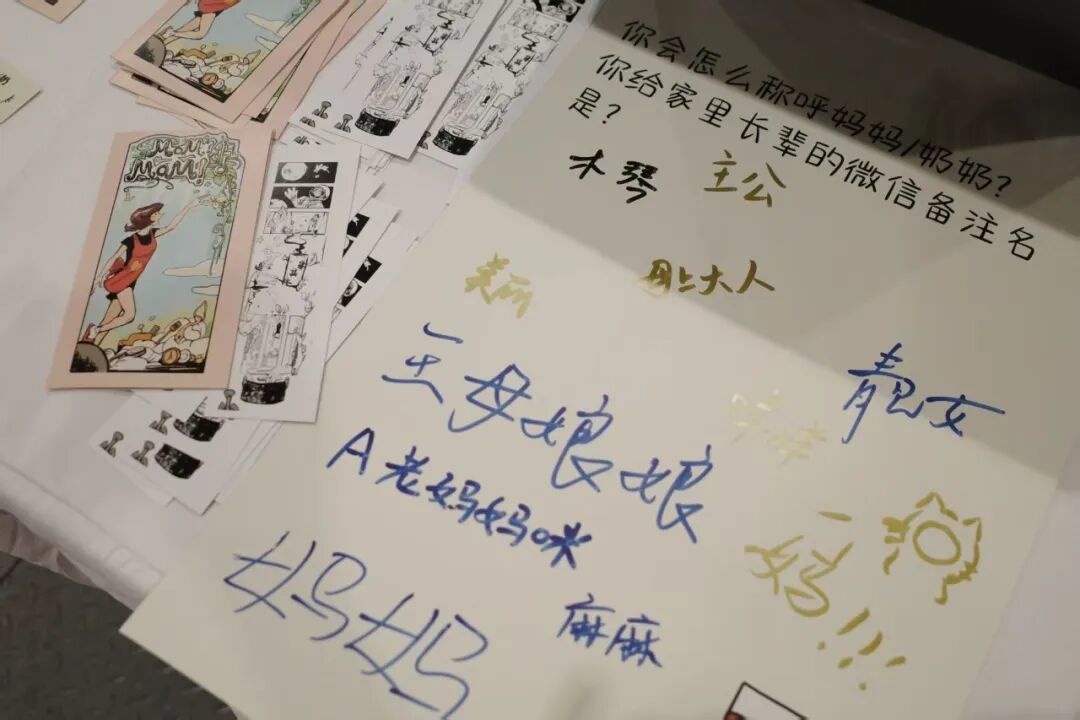 你会怎么称呼妈妈/奶奶?
你给家里长辈的微信备注名
是?
木琴
主公
美丽
母上大人
靓女
王母娘娘
A老妈妈咪
一妈!!!
妈妈
麻麻
MOM!
MAM!